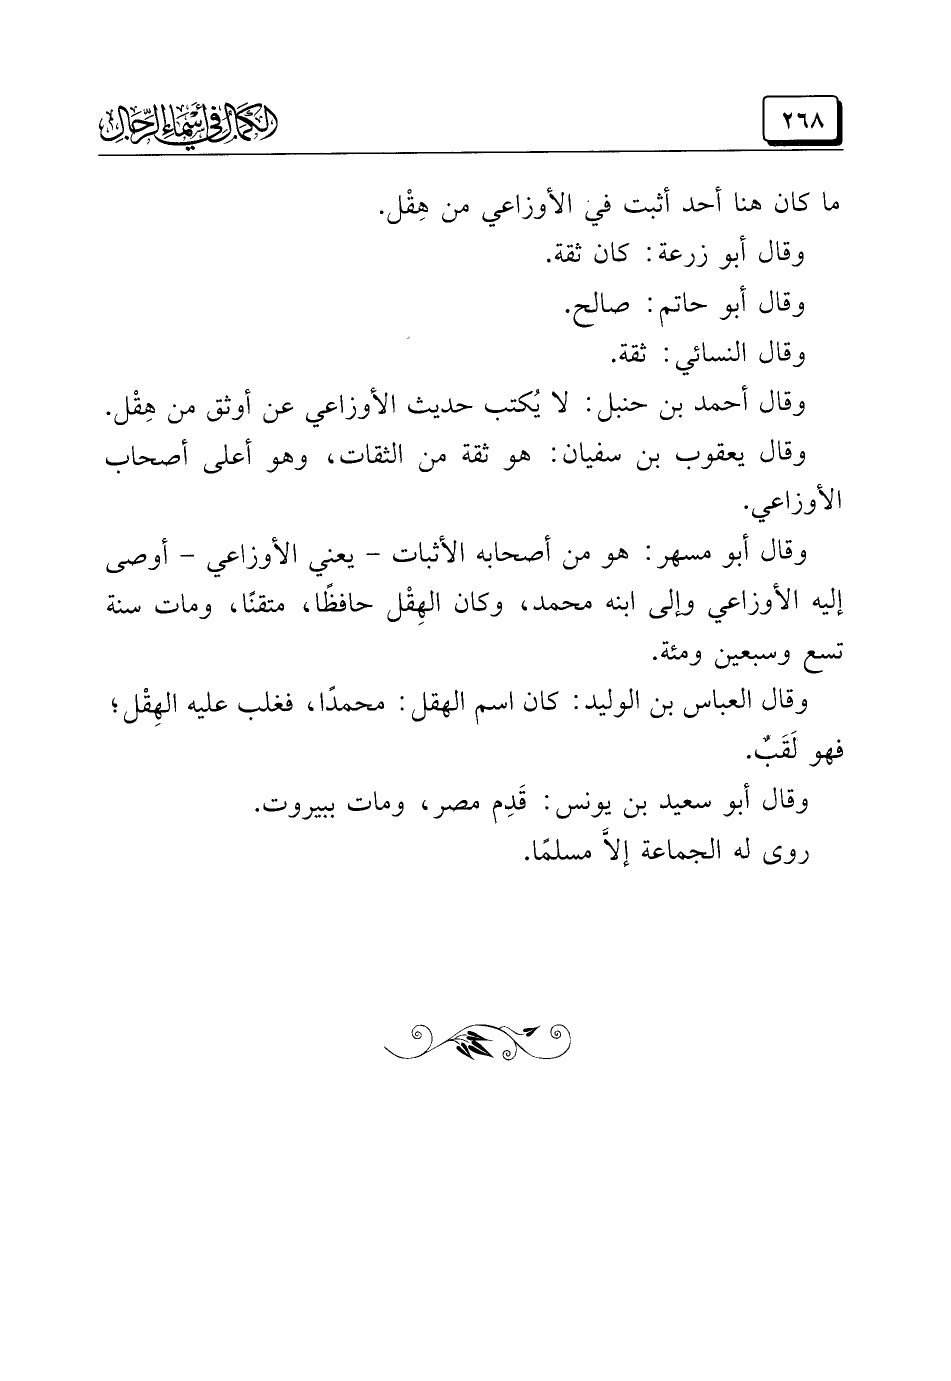 ٢٦٨
الكمال في أسماء الرجال
ما كان هنا أحد أثبت في الأوزاعي من هِقْل.
وقال أبو زرعة: كان ثقة.
وقال أبو حاتم: صالح.
وقال النسائي: ثقة.
وقال أحمد بن حنبل: لا يُكتب حديث الأوزاعي عن أوثق من هِقْل.
وقال يعقوب بن سفيان: هو ثقة من الثقات، وهو أعلى أصحاب
الأوزاعي.
وقال أبو مسهر: هو من أصحابه الأثبات - يعني الأوزاعي - أوصى
إليه الأوزاعي وإلى ابنه محمد، وكان الهِقْل حافظًا، متقنًا، ومات سنة
تسع وسبعين ومئة.
وقال العباس بن الوليد: كان اسم الهقل: محمدًا، فغلب عليه الهِقْل؛
فهو لَقَبٌ.
وقال أبو سعيد بن يونس: قَدِم مصر، ومات ببيروت.
روى له الجماعة إلاَّ مسلمًا.